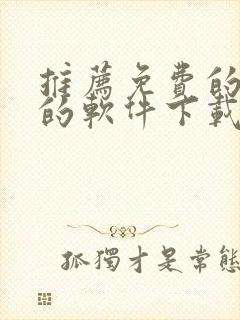 推薦免費的
的軟件下載
孤獨才是常態